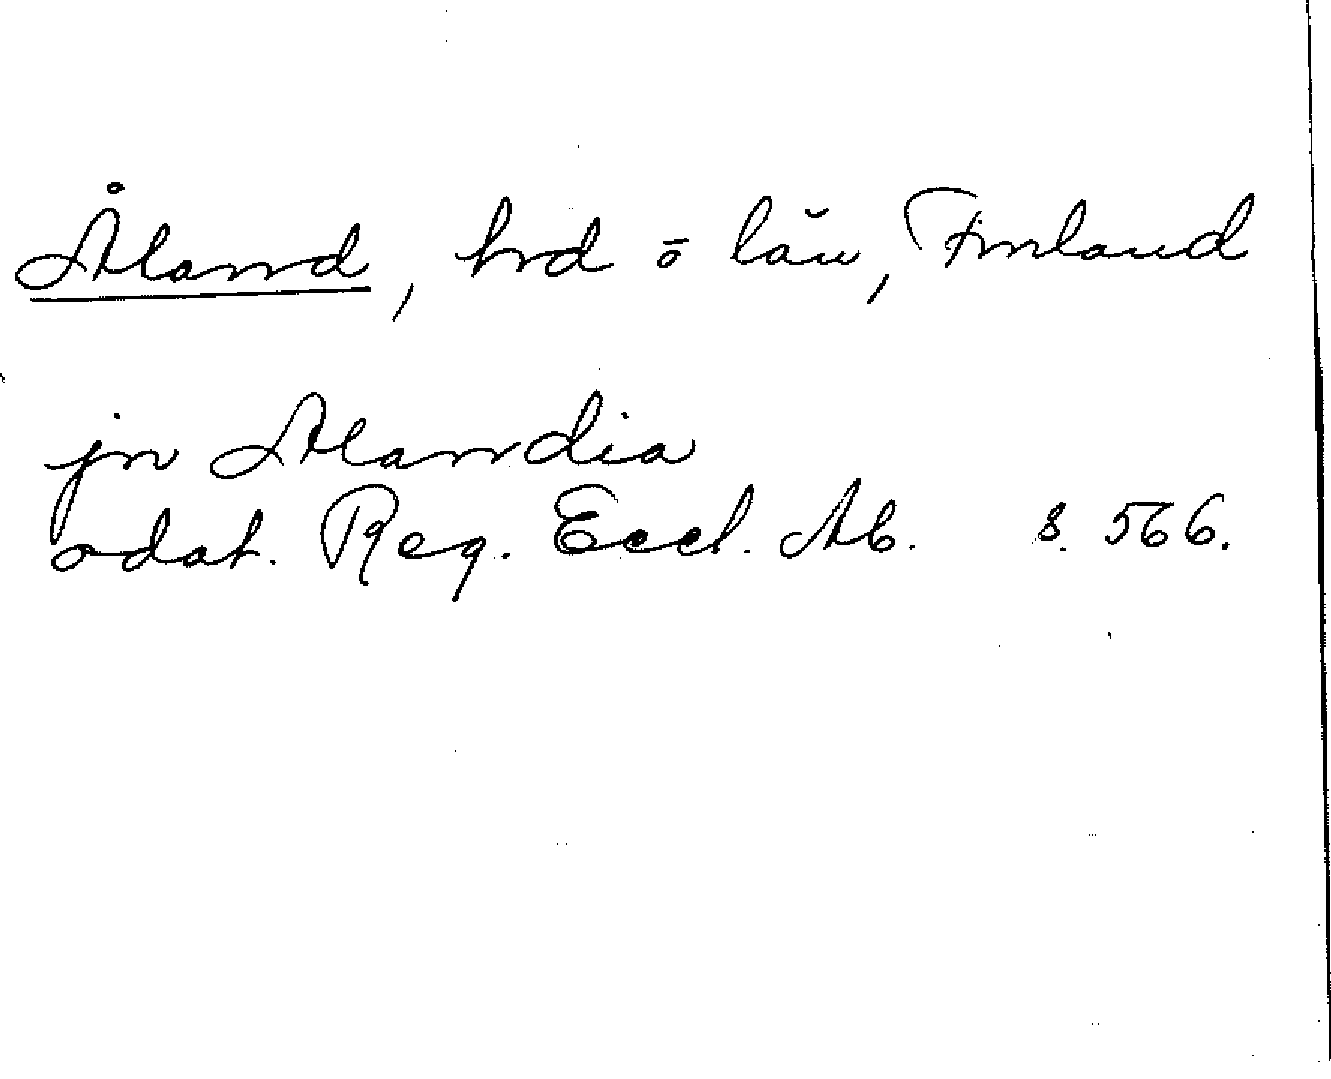 Åland, hrd o län, Finland
jn Alandia
odat. Reg. Eccl. Ab. s. 566.